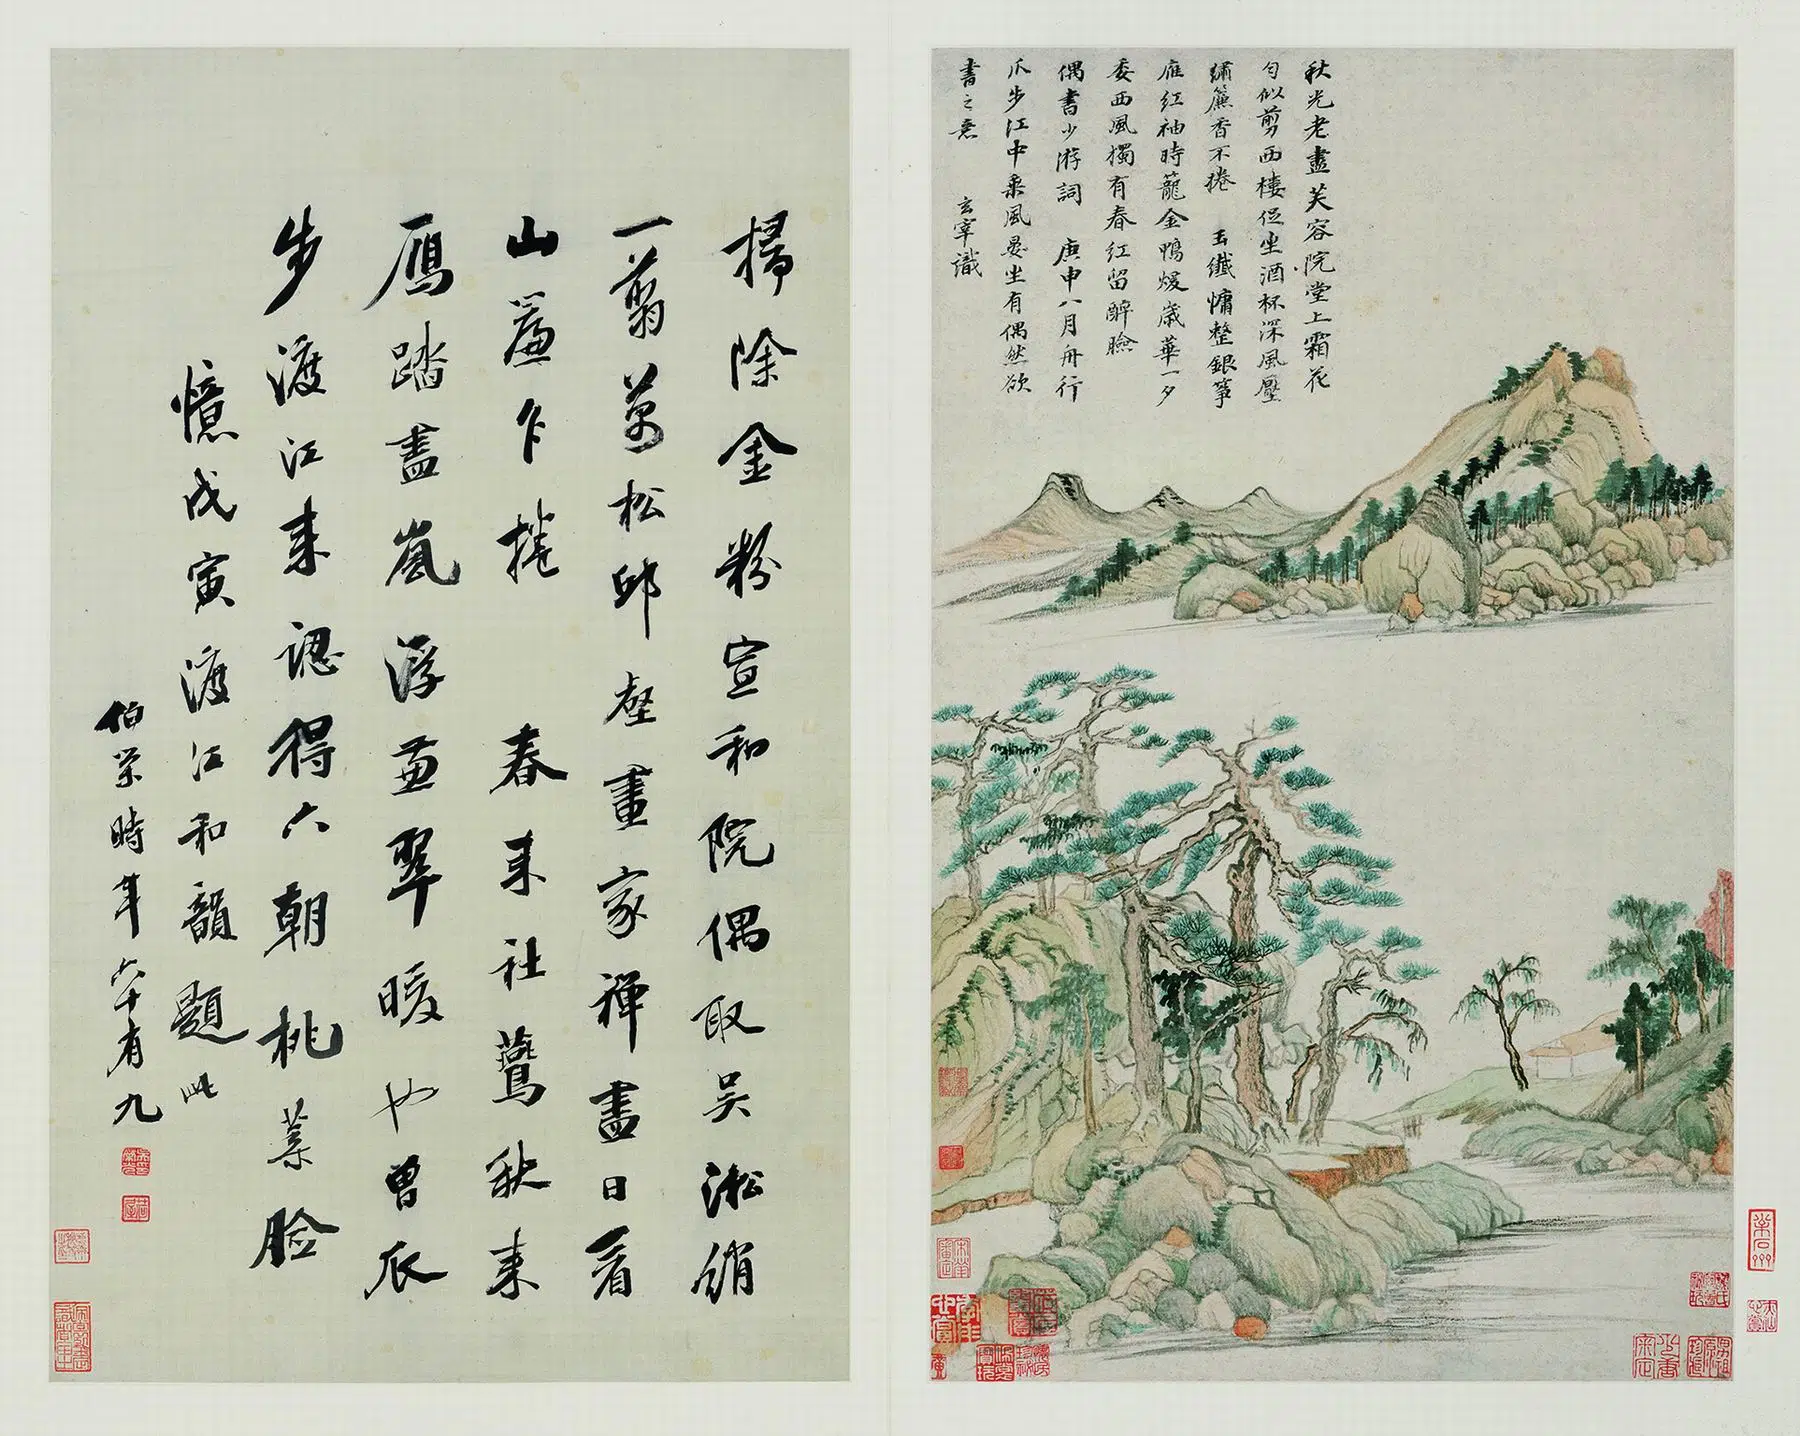 秋光老盡芙容院堂上霜花
勻似剪西樓促坐酒杯深風壓
繡簾香不捲 玉纖慵整銀箏
雁紅袖時籠金鴨煖歲華一夕
委西風獨有春紅留醉臉
偶書少游詞 庚申八月舟行
爪步江中乘風晏坐有偶然欲
書之意 玄宰識
掃除金粉宣和院偶取吳淞綃
一翦萬松邱壑畫家禪盡日看
山簾乍捲 春來社鷰秋來
鴈踏盡嵐浮翠暖也曾瓜
步渡江來認得六朝桃蘂臉
憶戊寅渡江和韻題此
伯榮時年六十有九